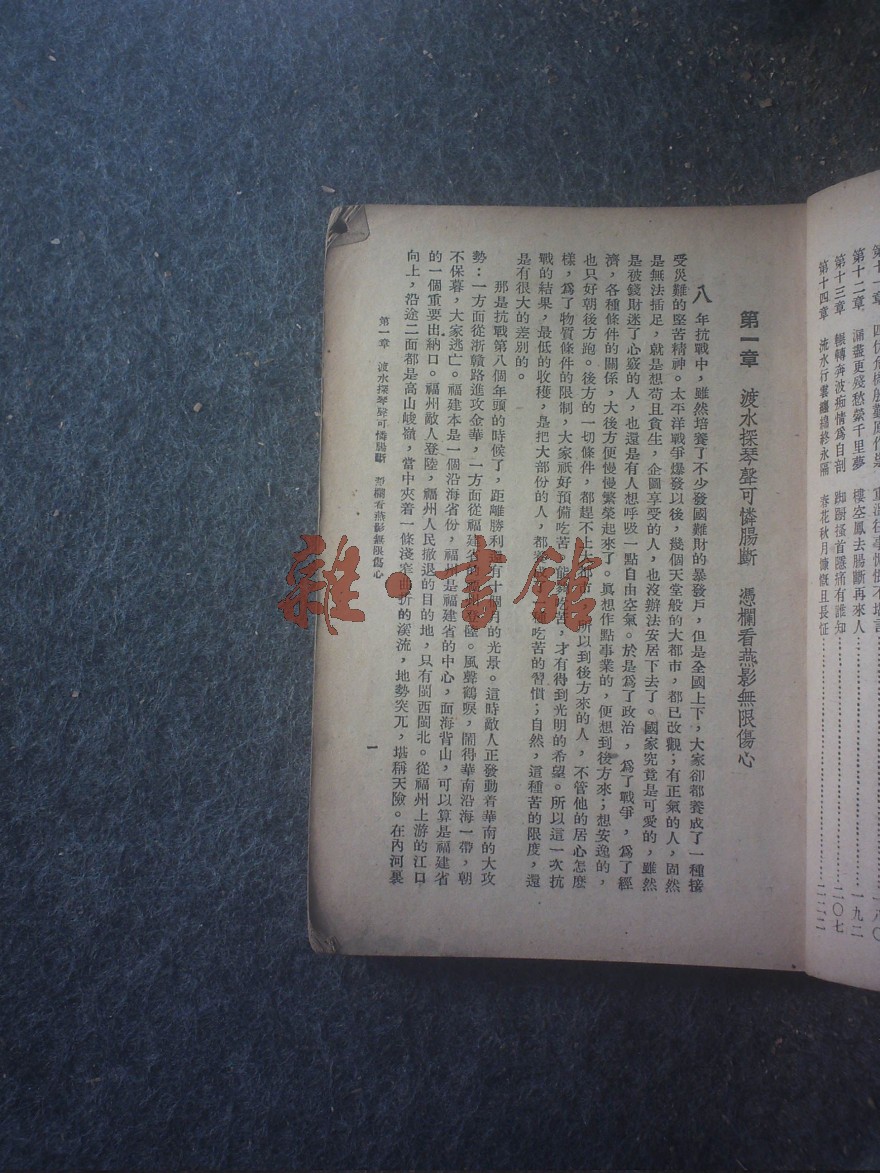 第十二章 漏盡更殘愁縈千里夢 樓空鳳去腸斷再來人 一九二
第十三章 輾轉奔波痴情爲自剖 踟躕搔首隱痛有誰知 二〇七
第十四章 流水行雲纏綿終永隔 春花秋月慷慨且長征 二二二
第一章 渡水探琴聲可憐腸斷 憑欄看燕影無限傷心
八年抗戰中，雖然培養了不少發國難財的暴發戶，但是全國上下，大家卻都養成了一種接
受災難的堅苦精神。太平洋戰爭爆發以後，幾個天堂般的大都市，都已改觀；有正氣的人，固然
是無法插足，就是想苟且貪生，企圖享受的人，也沒辦法安居下去了。國家究竟是可愛的，雖然
是被錢財迷了心竅的人，也還是有人想呼吸一點自由空氣。於是爲了政治，爲了戰爭，爲了經
濟，各種條件的關係，大後方便慢慢繁榮起來了。眞想作點事業的，便想到後方來；想安逸的，
也只好朝後方跑。後方的一切條件，都趕不上大都市，所以到後方來的人，不管他的居心怎麽
樣，爲了物質條件的限制，大家祇好預備吃苦，能夠吃苦，才有得到光明的希望。所以這一次抗
戰的結果，最低的收穫，是把大部份的人，都養成一種吃苦的習慣；自然，這種苦的限度，還
是有很大的差別的。
那是抗戰第八個年頭的時候了，距離勝利還有十個月的光景。這時敵人正發動着華南的大攻
勢：一方面從浙贛路進攻金華，一方面從福建省的福州登陸。風聲鶴唳，鬧得華南沿海一帶，朝
不保暮，大家逃亡。福建本是一個沿海省份，福州是福建省的中心，面海背山，可以算是福建省
的一個重要出納口。福州敵人登陸，福州人民撤退的目的地，只有閩西閩北。從福州上游的江口
向上，沿途二面都是高山峻嶺，當中夾着一條淺窄曲折的溪流，地勢突兀，堪稱天險。在內河裏
第一章 渡水探琴聲可憐腸斷 憑欄看燕影無限傷心
一
雜·書館